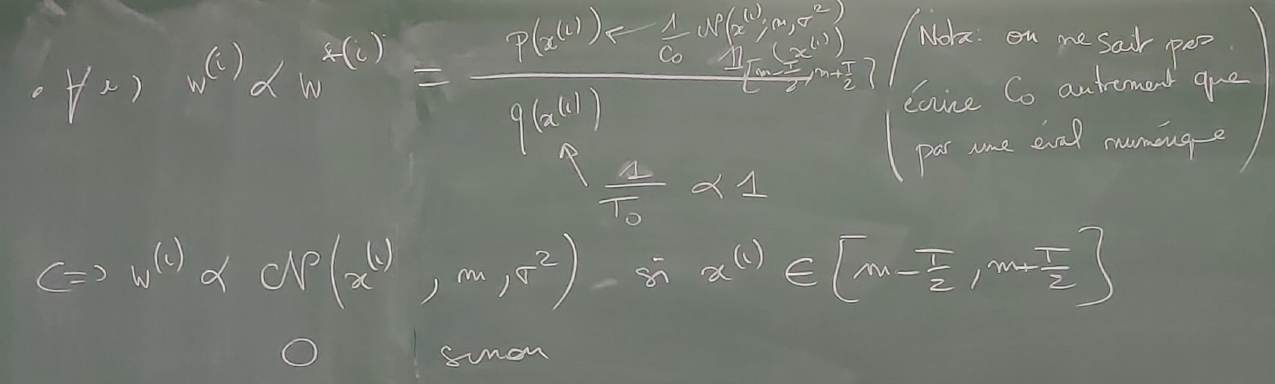 • ∀ i, w^(i) ∝ w^*(i) = p(x^(i)) / q(x^(i)) ← 1/C₀ 𝒩(x^(i); m, σ²) 𝟙_[m-T/2, m+T/2](x^(i))
(Nota: on ne sait pas
écrire C₀ autrement que
par une éval numérique)
↖ 1/T₀ ∝ 1
<=> w^(i) ∝ 𝒩(x^(i), m, σ²) si x^(i) ∈ [m-T/2, m+T/2]
0 sinon